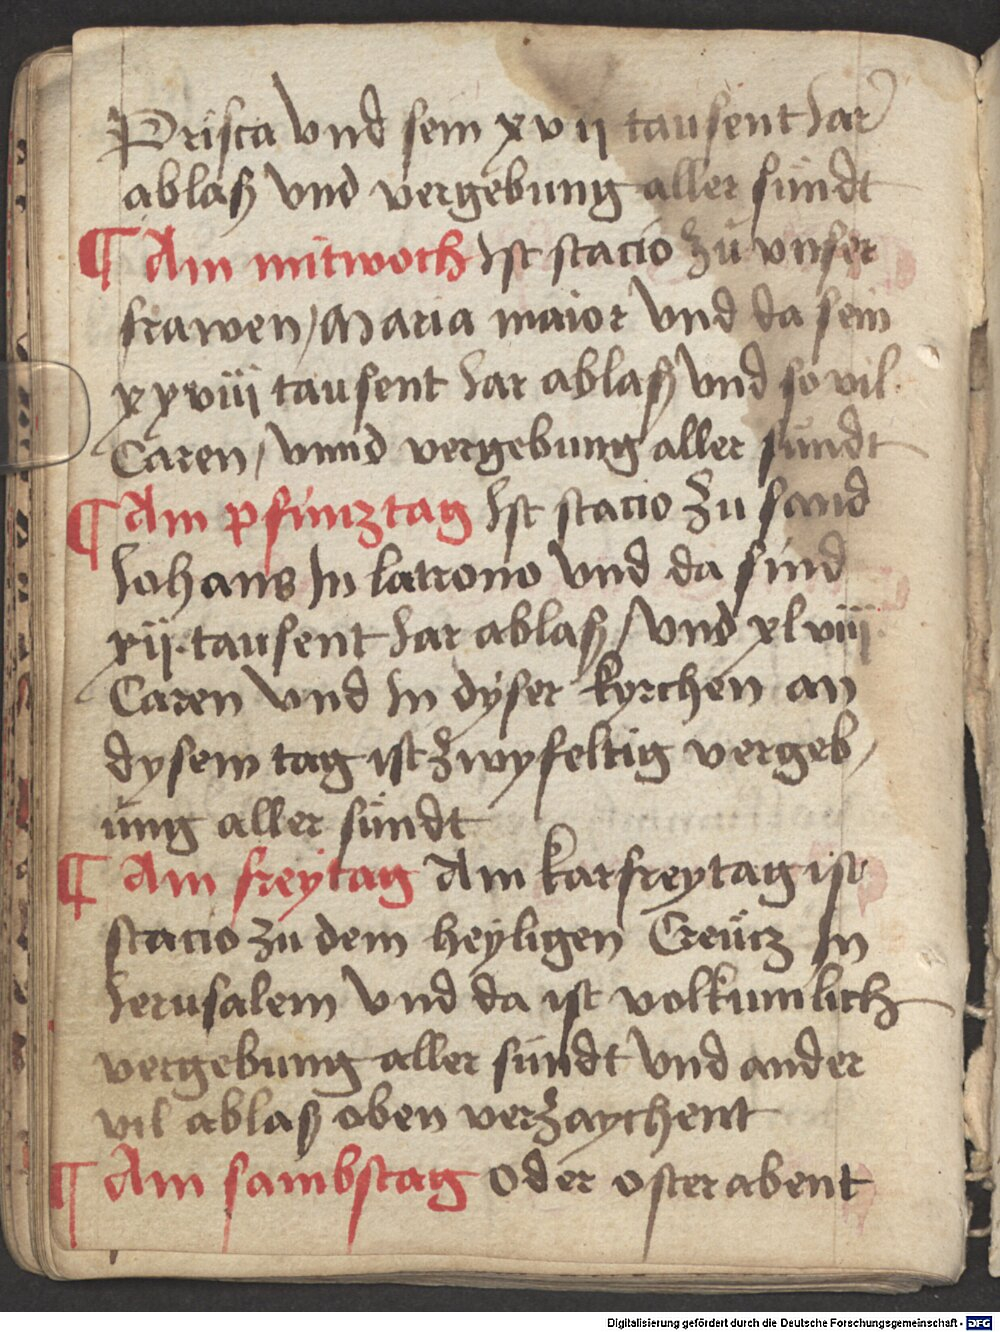 Prisca vnd sein xvij tausent Jar
ablaß vnd vergebung aller sündt
¶ Am mitwoch Ist stacio zu vnser
frawen / Maria maior vnd da sein
xxviij tausent Jar ablaß vnd so vil
Caren / vnnd vergebung aller sundt
¶ Am pfinnztag Ist stacio zu sand
Johans In latrono vnd da sind
xij. tausent Jar ablaß / vnd xlviij
Caren vnd In dyser kyrchen an
dysem tag ist zwyfeltig vergeb/
ung aller sündt
¶ Am freytag Am karfreytag ist
stacio zu dem heyligen Creücz In
Jerusalem vnd da ist volkumlich
vergebung aller sündt vnd ander
vil ablaß oben verzaychent
¶ Am sambstag oder osterabent
Digitalisierung gefördert durch die Deutsche Forschungsgemeinschaft - DFG